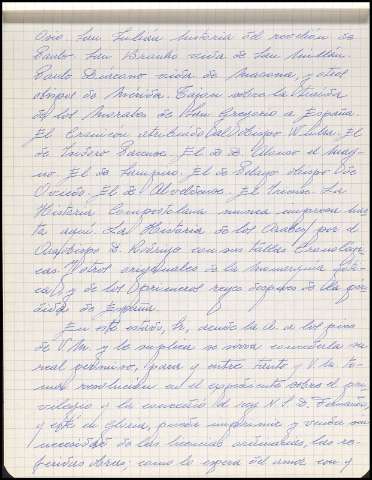 Osio. San Julián historia del rebelión de
Paulo. San Braulio vida de San Millán.
Paulo Diacono vida de Masona, y otros
obispos de Mérida. Tajon sobre la
de los Morales de San Gregorio a España.
El Cronicon atribuido al Obispo Wulsa. El
de Isidoro Pacense. El de D. Alonso el Mag-
no. El de Sampiro. El de Pelayo obispo de
Oviedo. El de Silense. La
Historia Compostelana nunca impresa has-
ta aquí. La Historia de los Arabes por el
Arzobispo D. Rodrigo con sus tablas Cronologi-
cas y otros originales de la monarquia goti-
ca y de los primeros reyes despues de la per-
dida de España.
En este estado, Sr., acude la a los pies
de V.M. y le suplica se sirva concederla su
real permiso, para y entre tanto y V. la to-
ma resolucion en el expediente sobre el pri-
vilegio y la concedió el rey N. S. D. Fernando,
y esté en gloria, pueda imprimir y vender sin
necesidad de las licencias ordinarias, las re-
feridas obras; como lo espera del amor con y